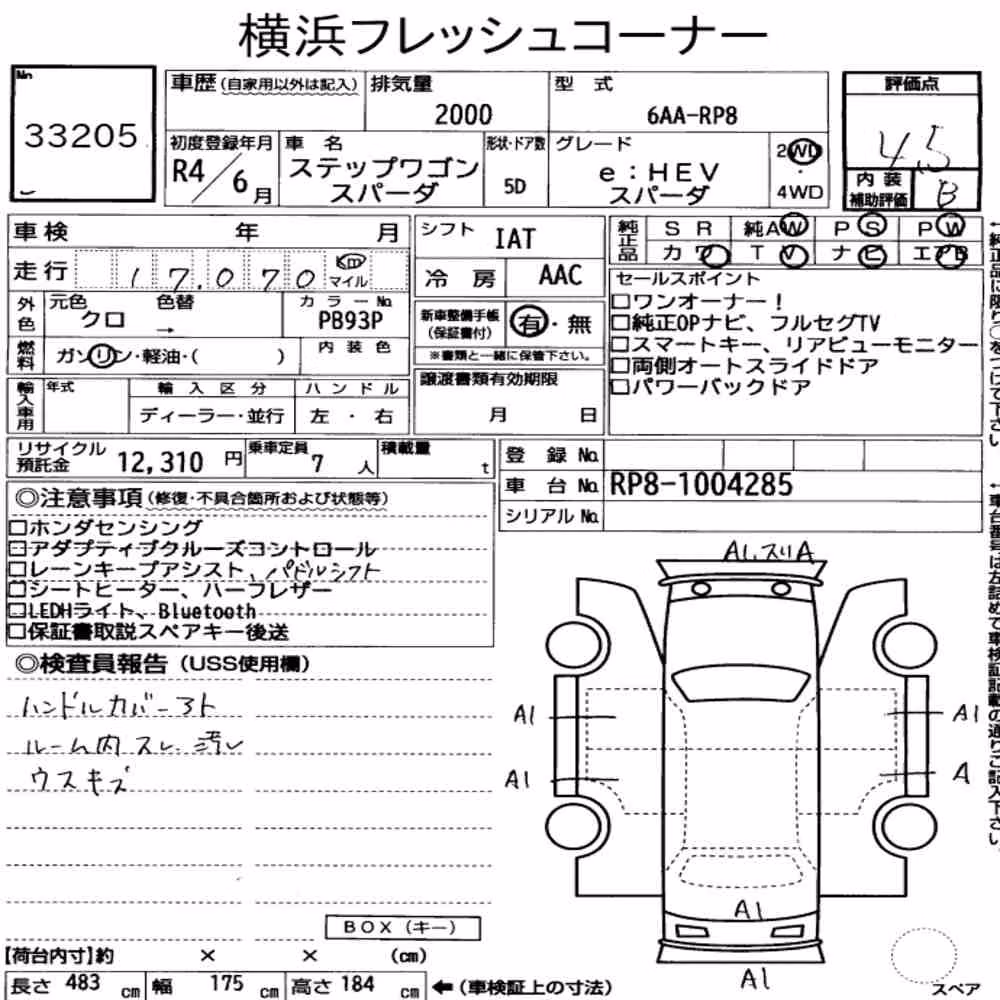 横浜フレッシュコーナー
No
33205
車歴 (自家用以外は記入)
排気量
2000
型 式
6AA-RP8
評価点
4.5
初度登録年月
R4/6月
車 名
ステップワゴン
スパーダ
形状・ドア数
5D
グレード
e:HEV
スパーダ
2WD
・
4WD
内 装
補助評価
B
車検 年 月
走行 17.070 Km マイル
シフト IAT
冷 房 AAC
純正品
S R 純AW P S P W
カワ T V ナビ エアB
外色
元色 クロ
色替 →
カラーNo
PB93P
燃料
ガソリン・軽油・( )
内 装 色
新車整備手帳
(保証書付)
有・無
※書類と一緒に保管下さい。
輸入車用
年式
輸 入 区 分
ディーラー・並行
ハ ン ド ル
左 ・ 右
譲渡書類有効期限
月 日
セールスポイント
□ワンオーナー!
□純正OPナビ、フルセグTV
□スマートキー、リアビューモニター
□両側オートスライドドア
□パワーバックドア
←純正品に限り○をつけて下さい
リサイクル
預託金
12,310 円
乗車定員
7 人
積載量
t
登 録 No
車 台 No RP8-1004285
シリアル No
←車台番号は左詰めて車検証記載の通りご記入下さい。
◎注意事項(修復・不具合箇所および状態等)
□ホンダセンシング
□アダプティブクルーズコントロール
□レーンキープアシスト、パドルシフト
□シートヒーター、ハーフレザー
□LEDHライト、Bluetooth
□保証書取説スペアキー後送
◎検査員報告 (USS使用欄)
ハンドルカバー ヌト
ルーム内 スレ 汚レ
ウスキズ
A1.スリA
A1
A1
A1
A
A1
A1
BOX(キー)
【荷台内寸】約 × × (cm)
長さ 483 cm 幅 175 cm 高さ 184 cm ←(車検証上の寸法)
スペア